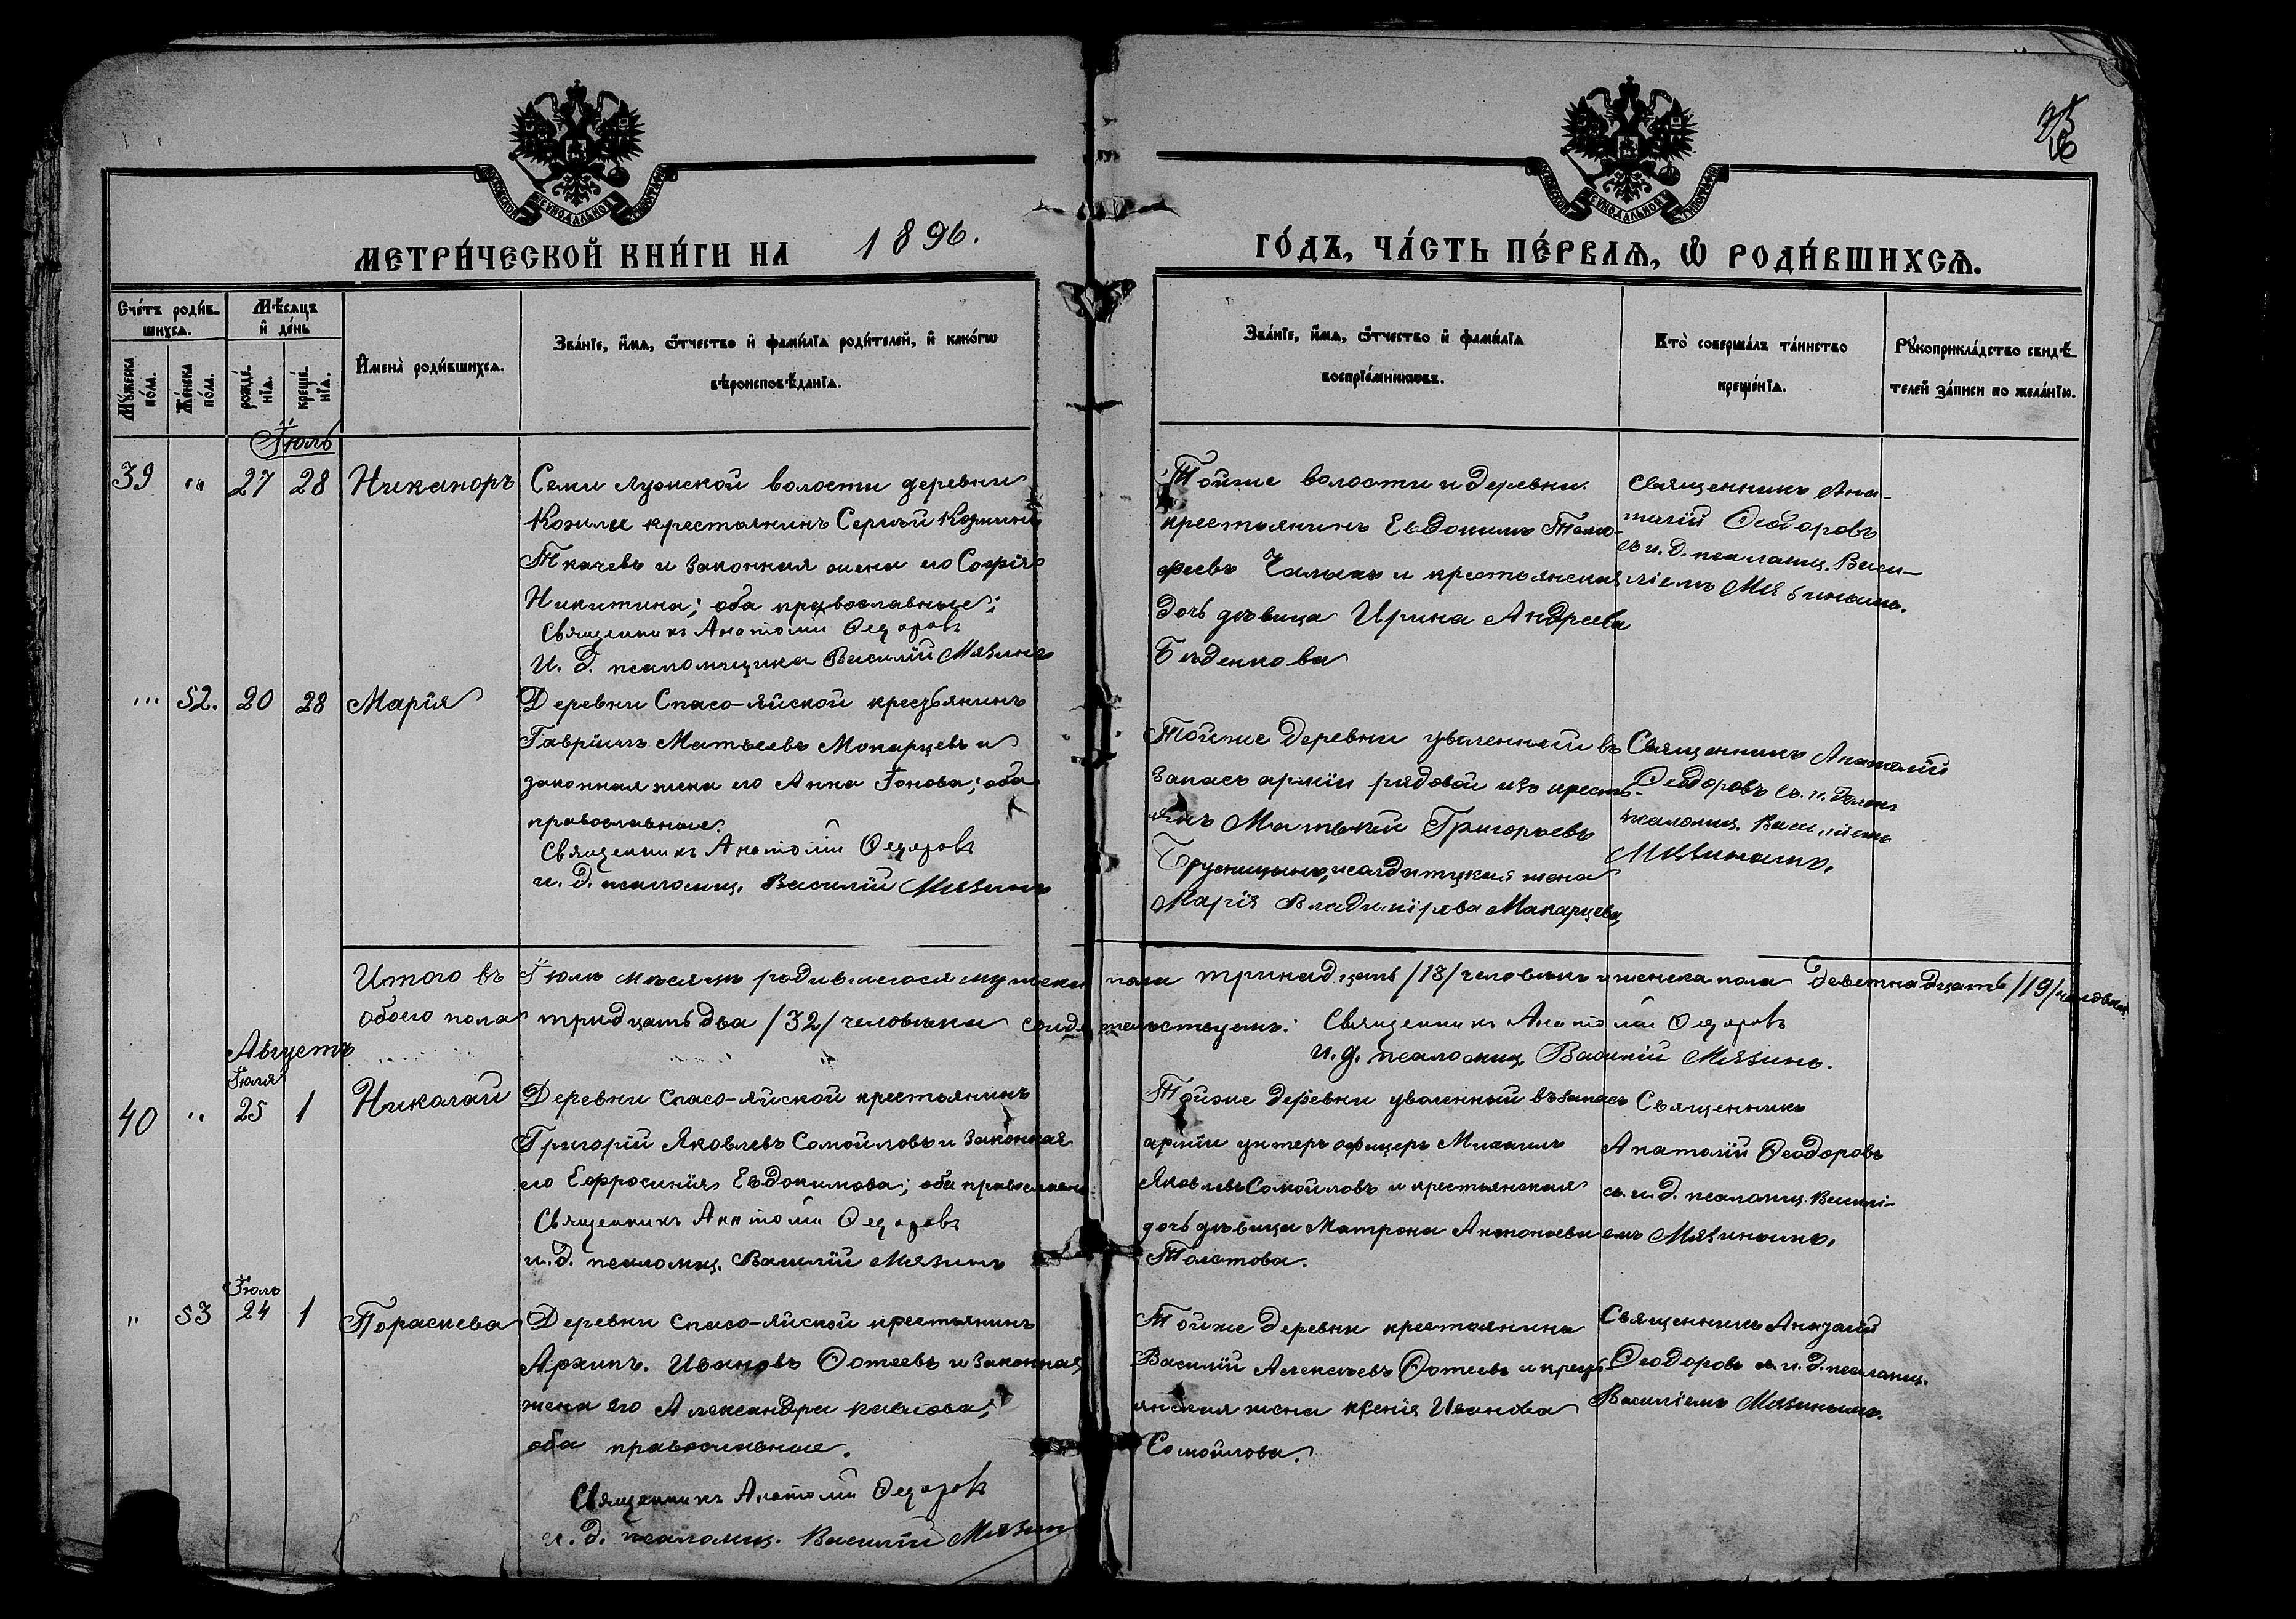 25
26
МОСКОВСКОЙ СУНОДАЛЬНОЙ ТИПОГРАФІИ
МЕТРИ́ЧЕСКОЙ КНИ́ГИ НА 1896.
ГО́ДЪ, ЧА́СТЬ ПЕ́РВАѦ, Ѡ РОДИ́ВШИХСѦ.
Сче́тъ роди́в-
шихсѧ.
Мѣ́сяцъ
и҆ де́нь
Мꙋ́жеска
по́ла.
Же́нска
по́ла.
рожде́-
нїѧ.
креще́-
нїѧ.
И҆мена̀ роди́вшихсѧ.
Зва́нїе, и҆́мѧ, ѻ҆́тчество и҆ фами́лїѧ роди́телей, и҆ како́гѡ
вѣроисповѣ́данїѧ.
Зва́нїе, и҆́мѧ, ѻ҆́тчество и҆ фами́лїѧ
воспрїе́мникѡвъ.
Кто̀ соверша́лъ та́инство
креще́нїѧ.
Рꙋкоприкла́дство свидѣ́-
телей за́писи по жела́нїю.
Іюль
39 " 27 28 Никаноръ
Семилуженской волости деревни
крестьянинъ Сергѣй Козминъ
Ткачевъ и законная жена его Софія
Никитина; оба православные;
Священникъ Анатолій Ѳедоровъ
И. д. псаломщика Василій Мязинъ
Тойже волости и деревни
крестьянинъ Евдокимъ Тимо-
феевъ и крестьянская
дочь дѣвица Ирина Андреева
Бѣденкова
Священникъ Ана-
толій Ѳеодоровъ
съ и. д. псаломщ. Васи-
ліемъ Мязинымъ.
" 52. 20 28 Марія
Деревни Спасо-Яйской крестьянинъ
Гавріилъ Матвеевъ Мокарцевъ и
законная жена его Анна Іонова; оба
православные.
Священникъ Анатолій Ѳедоровъ
и. д. псаломщ. Василій Мязинъ
Тойже деревни уволенный въ
запасъ арміи рядовой изъ кресть-
янъ Матвей Григорьевъ
Брусницынъ, и солдатская жена
Марія Владимірова Макарцева
Священникъ Анатолій
Ѳеодоровъ съ и. долж.
псаломщ. Василіемъ
Мязинымъ.
Итого въ Іюлѣ мѣсяцѣ родившегося мужеска пола тринадцать /13/ человѣкъ и женска пола девятнадцать /19/ человѣкъ
обоего пола тридцать два /32/ человѣка свидѣтельствуемъ: Священникъ Анатолій Ѳедоровъ
И. д. псаломщ. Василій Мязинъ.
Августъ
Іюля
40 " 25 1 Николай
Деревни Спасо-Яйской крестьянинъ
Григорій Яковлевъ Сомойловъ и законная
его Ефросинія Евдокимова; оба православные
Священникъ Анатолій Ѳедоровъ
и. д. псаломщ. Василій Мязинъ
Тойже деревни уволенный въ запасъ
арміи унтеръ офицеръ Михаилъ
Яковлевъ Сомойловъ и крестьянская
дочь дѣвица Матрона Антоноева
Толстова.
Священникъ
Анатолій Ѳеодоровъ
съ и. д. псаломщ. Василі-
емъ Мязинымъ.
Іюль
" 53 24 1 Пораскева
Деревни Спасо-Яйской крестьянинъ
Архипъ Ивановъ Фотеевъ и законная
жена его Александра Власова;
оба православные.
Священникъ Анатолій Ѳедоровъ
и. д. псаломщ. Василій Мязинъ
Тойже деревни крестьянинъ
Василій Алексѣевъ Фотеевъ и кресть-
янская жена Ксенія Иванова
Сомойлова.
Священникъ Анатолій
Ѳеодоровъ съ и. д. псаломщ.
Василіемъ Мязинымъ.